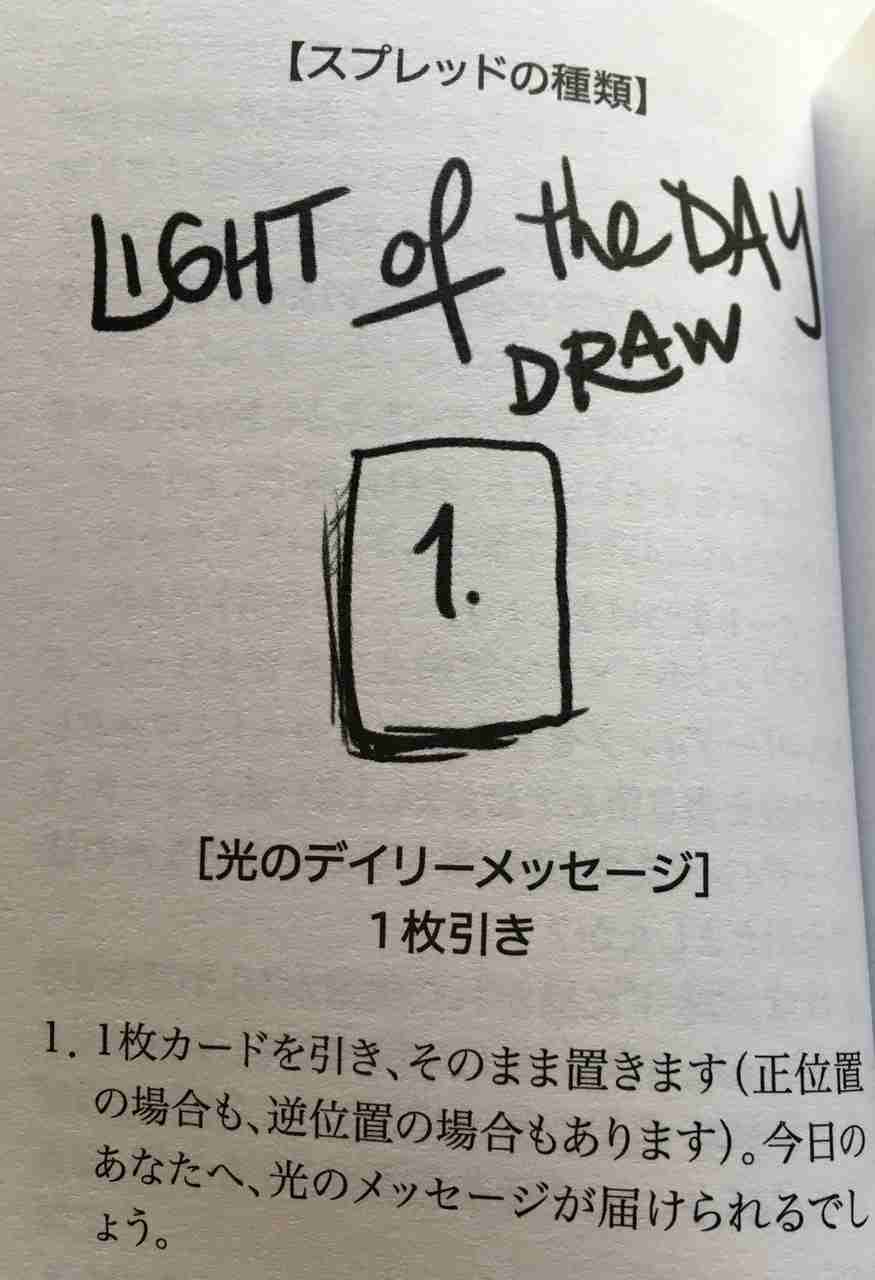 【スプレッドの種類】
LIGHT of the DAY
DRAW
1.
[光のデイリーメッセージ]
1枚引き
1. 1枚カードを引き、そのまま置きます(正位置
の場合も、逆位置の場合もあります)。今日の
あなたへ、光のメッセージが届けられるでし
ょう。